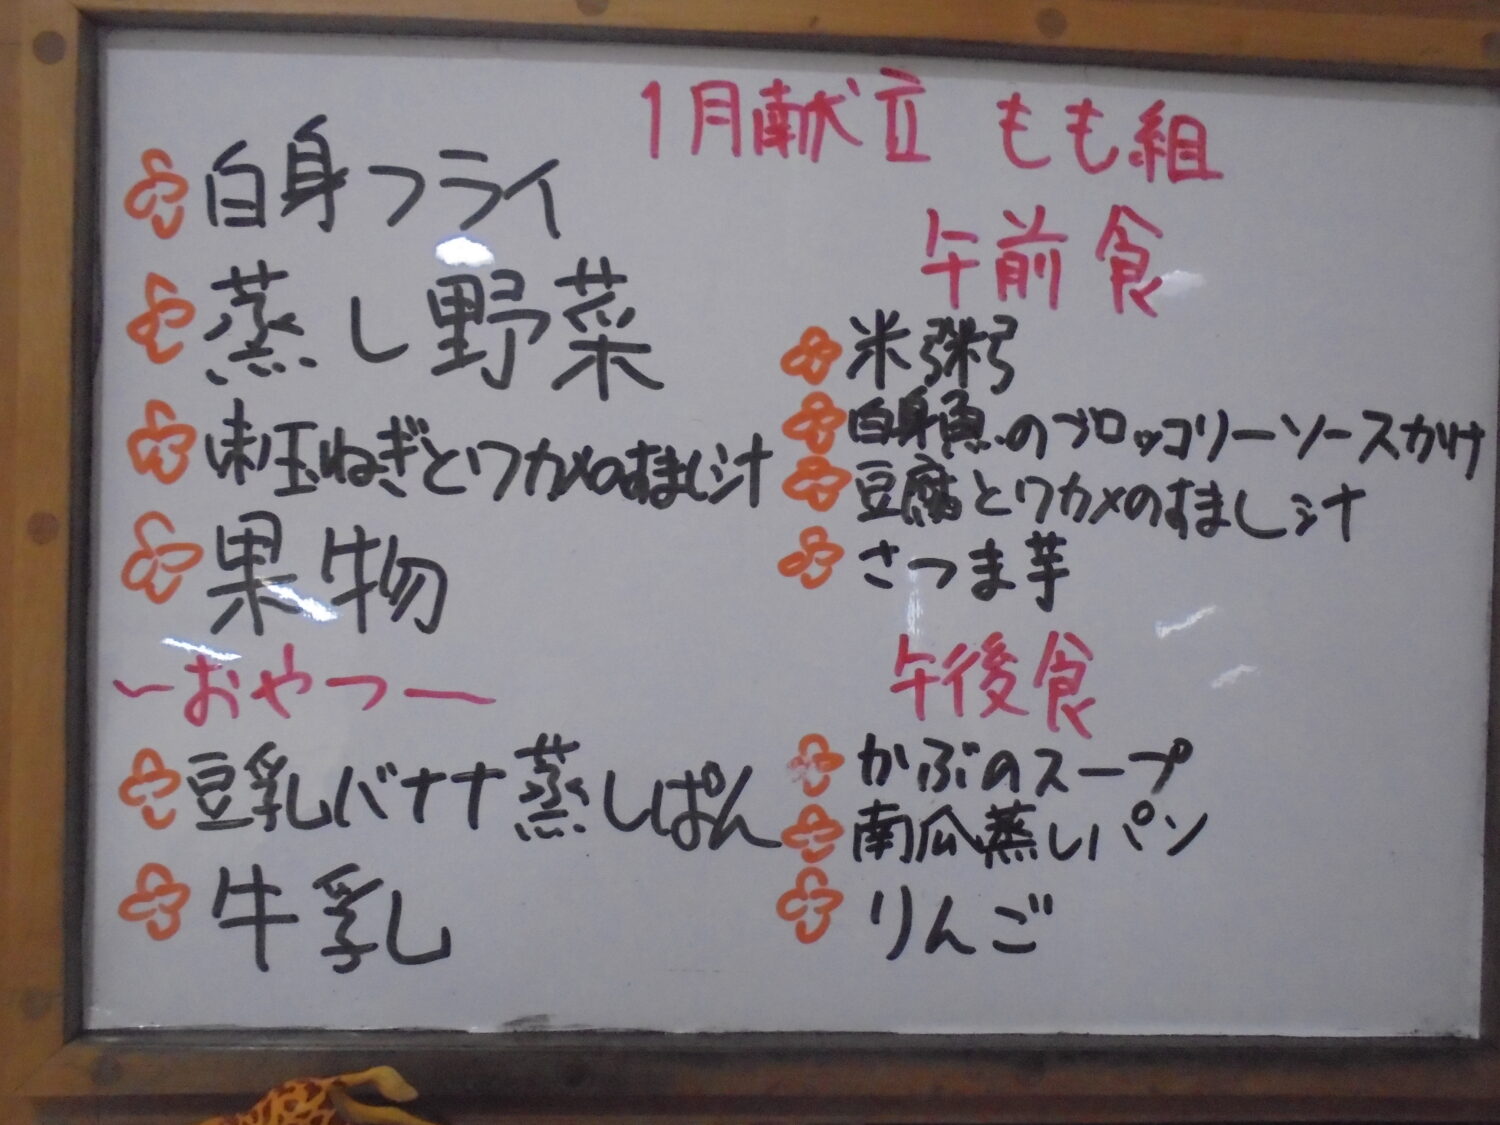 白身フライ
蒸し野菜
玉ねぎとワカメのすまし汁
果物
〜おやつ〜
豆乳バナナ蒸しぱん
牛乳
1月献立 もも組
午前食
米粥
白身魚のブロッコリーソースかけ
豆腐とワカメのすまし汁
さつま芋
午後食
かぶのスープ
南瓜蒸しパン
りんご